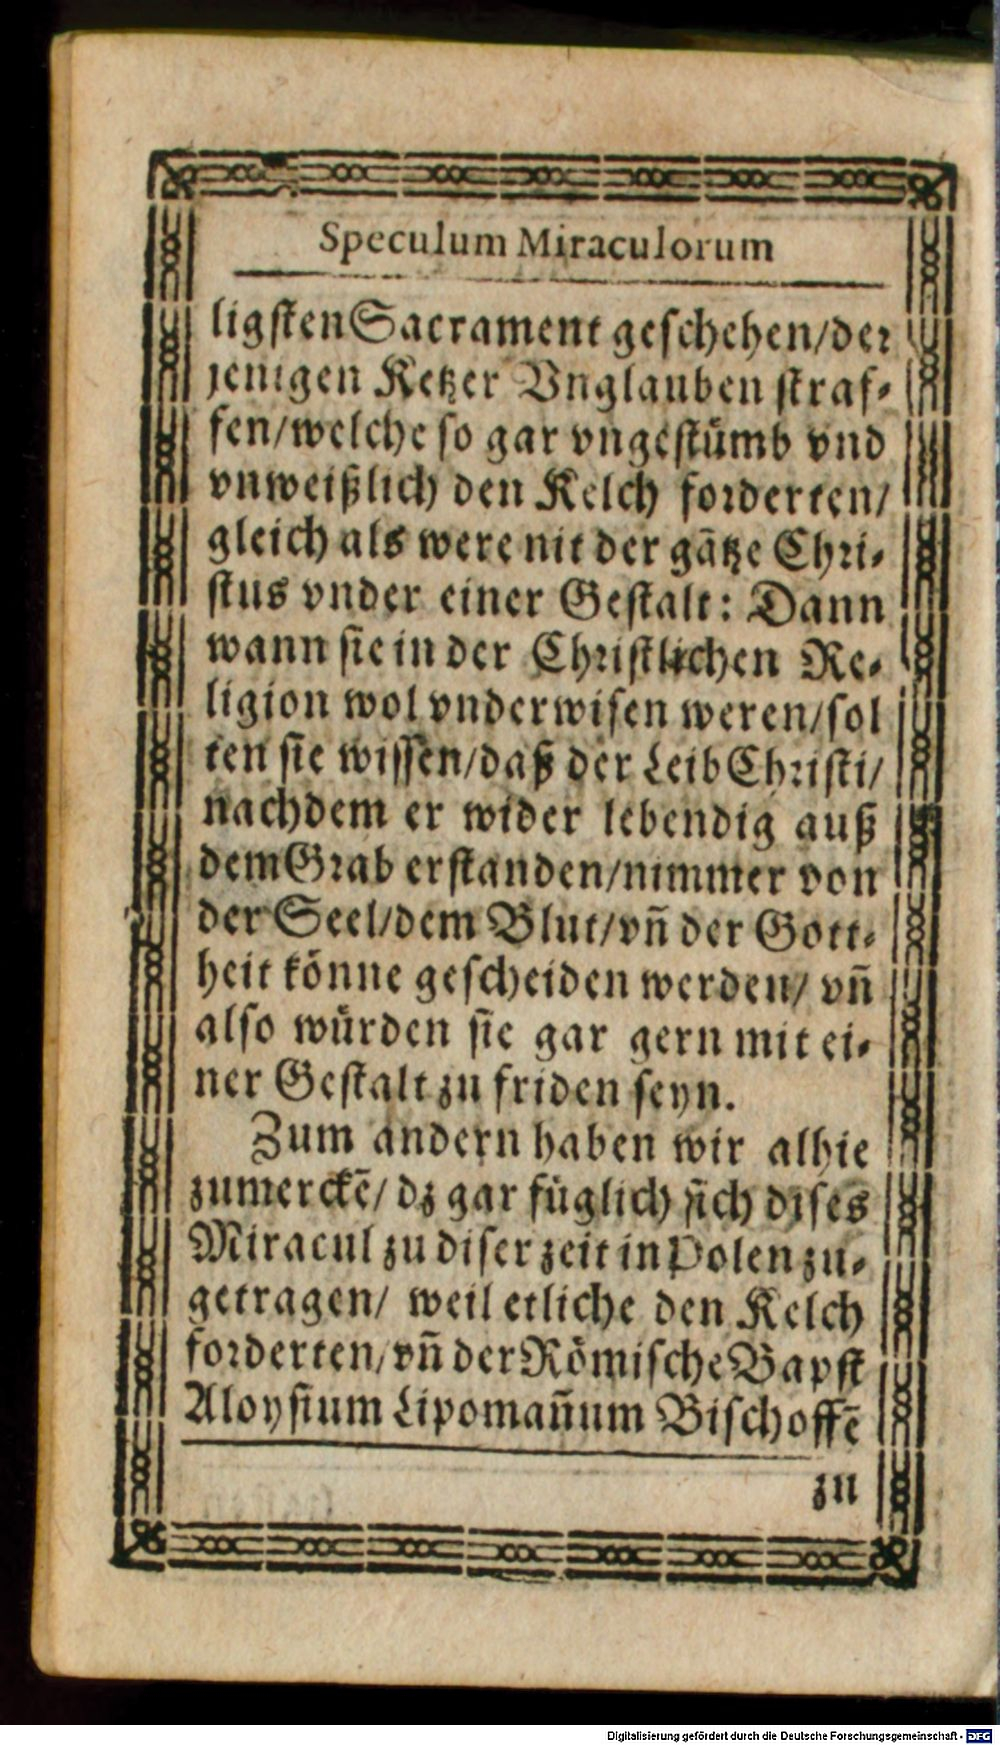 Speculum Miraculorum
ligsten Sacrament geschehen/der
jenigen Ketzer Vnglauben straf-
fen/welche so gar vngestümb vnd
vnweißlich den Kelch forderten/
gleich als were nit der gãtze Chri-
stus vnder einer Gestalt: Dann
wann sie in der Christlichen Re-
ligion wol vnderwisen weren/sol
ten sie wissen/daß der Leib Christi/
nachdem er wider lebendig auß
dem Grab erstanden/nimmer von
der Seel/dem Blut/vñ der Gott-
heit könne gescheiden werden/ vñ
also würden sie gar gern mit ei-
ner Gestalt zu friden seyn.
Zum andern haben wir alhie
zumerckẽ/ dz gar füglich sich dises
Miracul zu diser zeit in Polen zu-
getragen/ weil etliche den Kelch
forderten/vñ der Römische Bapst
Aloysium Lipomañum Bischoffẽ
zu
Digitalisierung gefördert durch die Deutsche Forschungsgemeinschaft - DFG